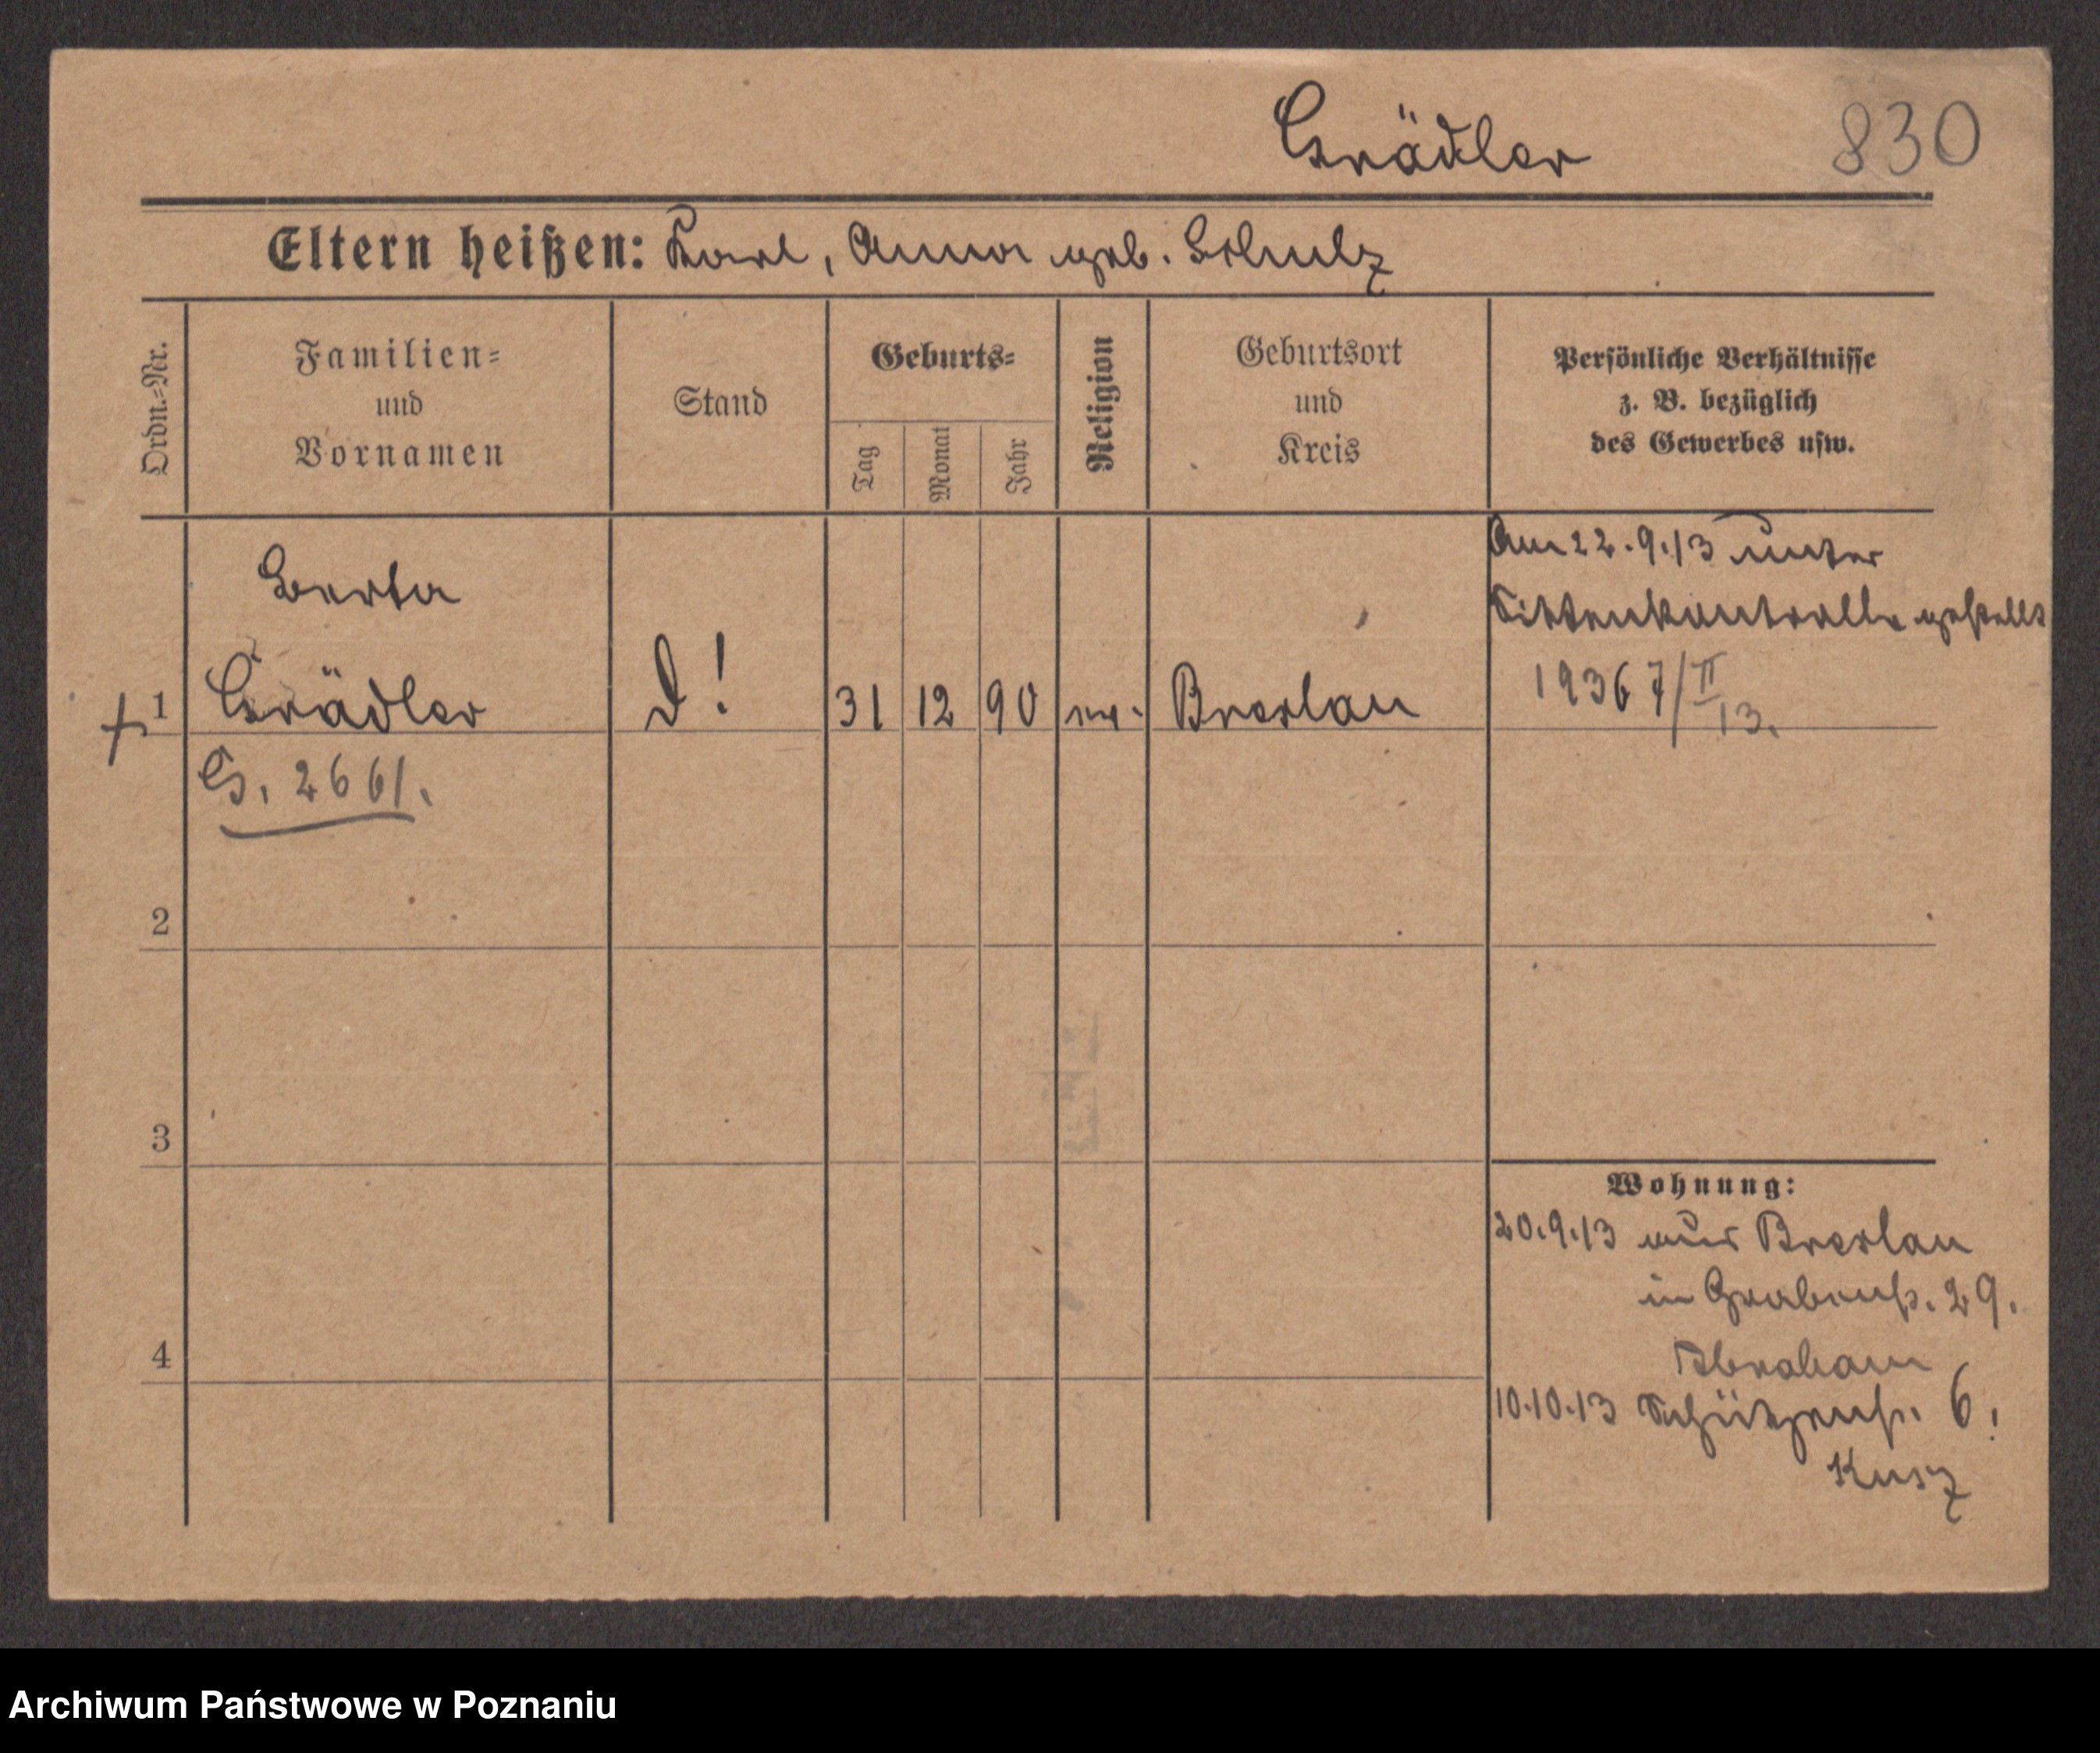 Grädler 830
Eltern heißen: Karl, Anna geb. Scholz
Ordn.=Nr.
Familien=
und
Vornamen
Stand
Geburts=
Tag
Monat
Jahr
Religion
Geburtsort
und
Kreis
Persönliche Verhältnisse
z. B. bezüglich
des Gewerbes usw.
Am 22.9.13 unter
Sittenkontrolle gestellt
19367/II
13.
Berta
+ 1 Grädler D! 31 12 90 ev. Breslau
G. 2661.
2
3
4
Wohnung:
20.9.13 aus Breslau
in Grabenstr. 29.
Abraham
10.10.13 Schützenstr. 6.
Kusz
Archiwum Państwowe w Poznaniu